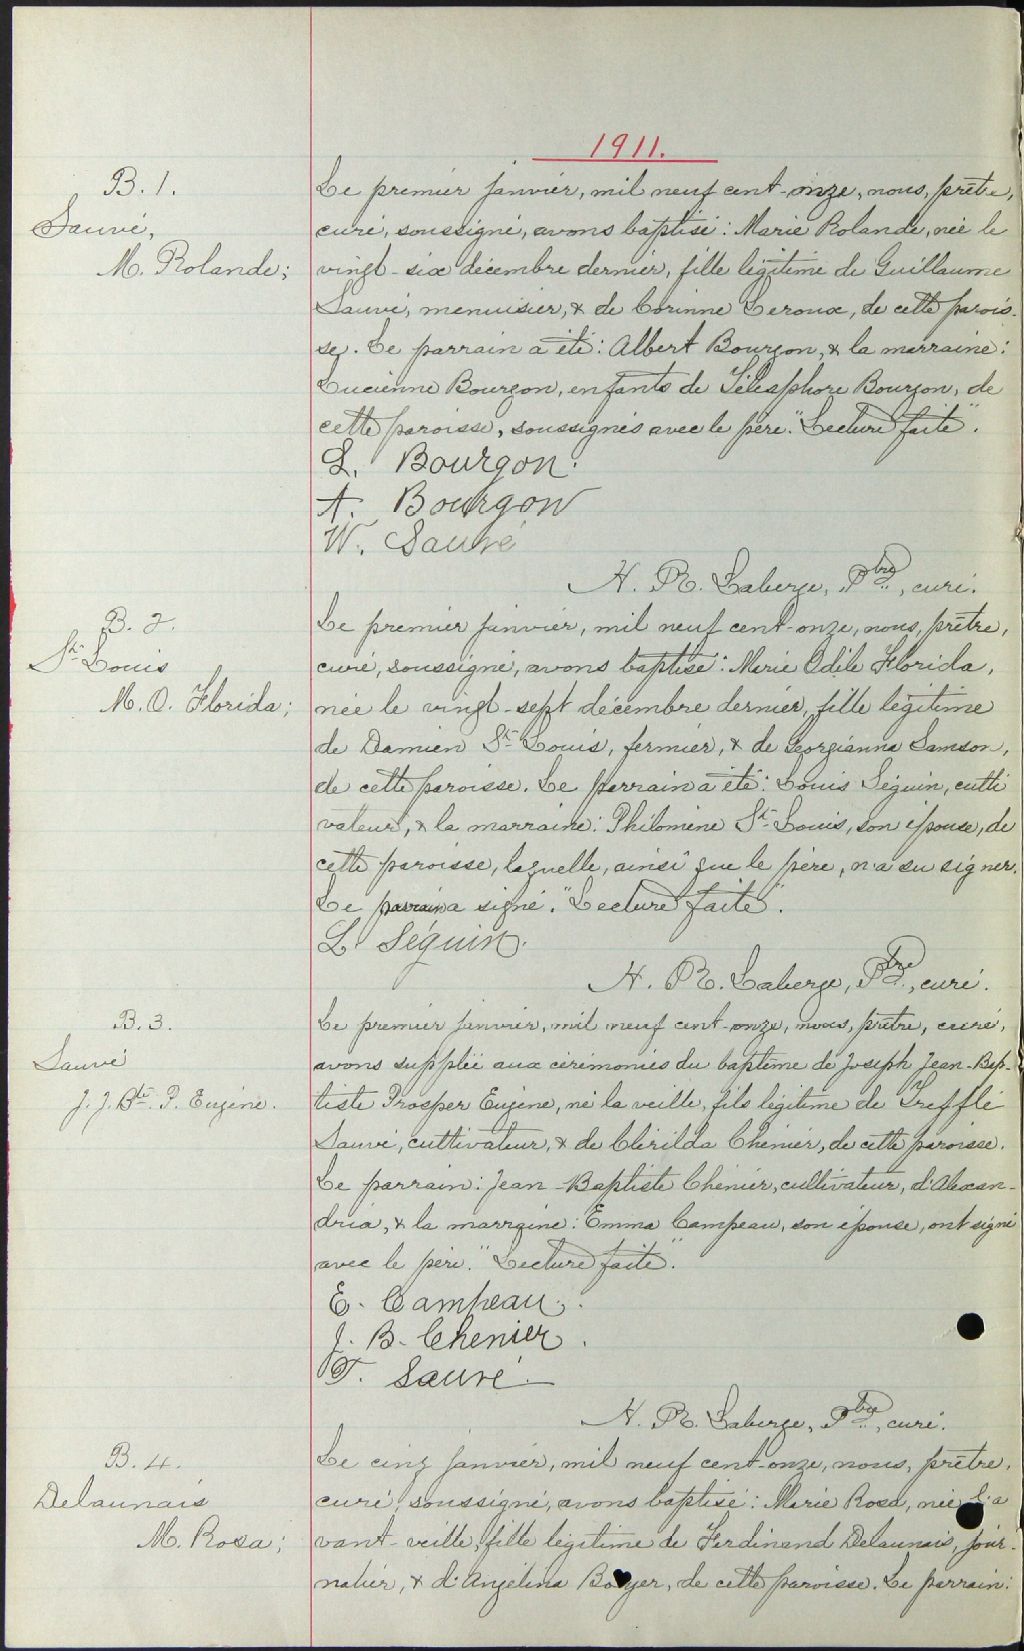 1911.
B. 1.
Sauvé,
M. Rolande;
Le premier janvier, mil neuf cent-onze, nous, prêtre,
curé, soussigné, avons baptisé: Marie Rolande, née le
vingt-six décembre dernier, fille légitime de Guillaume
Sauvé, menuisier, & de Corinne Leroux, de cette parois-
se. Le parrain a été: Albert Bourgon, & la marraine:
Lucienne Bourgon, enfants de Télesphore Bourgon, de
cette paroisse, soussignés avec le père. "Lecture faite".
L. Bourgon.
A. Bourgon
W. Sauvé
H. R. Laberge, Ptre, curé.
B. 2.
St-Louis
M. O. Florida;
Le premier janvier, mil neuf cent-onze, nous, prêtre,
curé, soussigné, avons baptisé: Marie Odile Florida,
née le vingt-sept décembre dernier, fille légitime
de Damien St-Louis, fermier, & de Georgianna Samson,
de cette paroisse. Le parrain a été: Louis Séguin, culti
vateur, & la marraine: Philomène St-Louis, son épouse, de
cette paroisse, laquelle, ainsi que le père, n'a su signer.
Le parrain a signé. "Lecture faite".
L. Séguin.
H. R. Laberge, Ptre, curé.
B. 3.
Sauvé
J. J. Bte. P. Eugène.
Le premier janvier, mil neuf cent-onze, nous, prêtre, curé,
avons supplée aux cérémonies du baptême de Joseph Jean-Bap-
tiste Prosper Eugène, né la veille, fils légitime de Trefflé
Sauvé, cultivateur, & de Clérilda Chénier, de cette paroisse.
Le parrain: Jean-Baptiste Chénier, cultivateur, d'Alexan-
dria, & la marraine: Emma Campeau, son épouse, ont signé
avec le père. "Lecture faite".
E. Campeau.
J. B. Chenier.
T. Sauvé
H. R. Laberge, Ptre, curé.
B. 4.
Delaunais
M. Rosa;
Le cinq janvier, mil neuf cent-onze, nous, prêtre,
curé, soussigné, avons baptisé: Marie Rosa, née l'a
vant-veille, fille légitime de Ferdinand Delaunais, jour-
nalier, & d'Angélina Boyer, de cette paroisse. Le parrain: